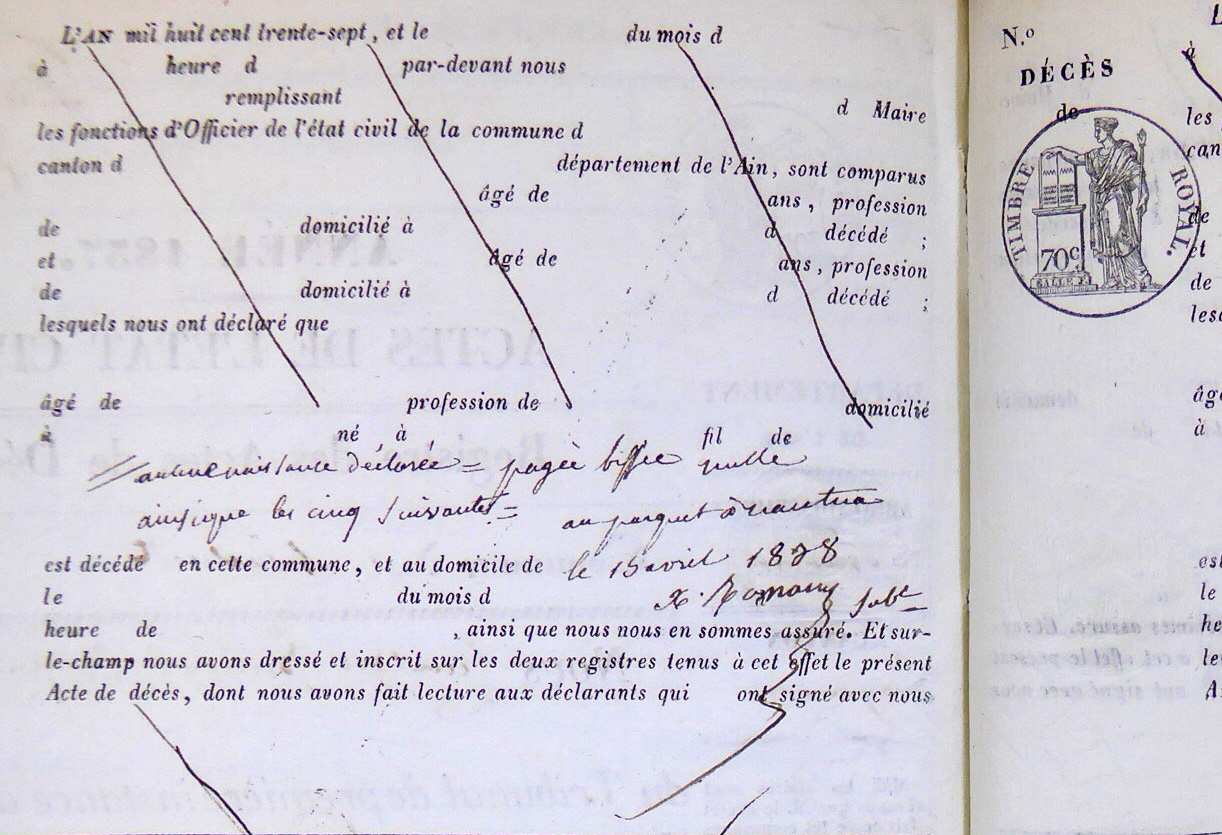 L'AN mil huit cent trente-sept, et le du mois d
à heure d par-devant nous
remplissant
d Maire
les fonctions d'Officier de l'état civil de la commune d
canton d département de l'Ain, sont comparus
âgé de ans, profession
de domicilié à d décédé ;
et âgé de ans, profession
de domicilié à d décédé ;
lesquels nous ont déclaré que
âgé de profession de domicilié
à né à fil de
déclarée = pagée biffée nulle
ainsi que les cinq suivantes = au parquet à nantua
est décédé en cette commune, et au domicile de le 15 avril 1838
le du mois d
heure de , ainsi que nous nous en sommes assuré. Et sur-
le-champ nous avons dressé et inscrit sur les deux registres tenus à cet effet le présent
Acte de décès, dont nous avons fait lecture aux déclarants qui ont signé avec nous
N.o
DÉCÈS
de
TIMBRE ROYAL.
70c
à
les
can
de
et
de
lesq
âgé
à
est
le
he
le
A